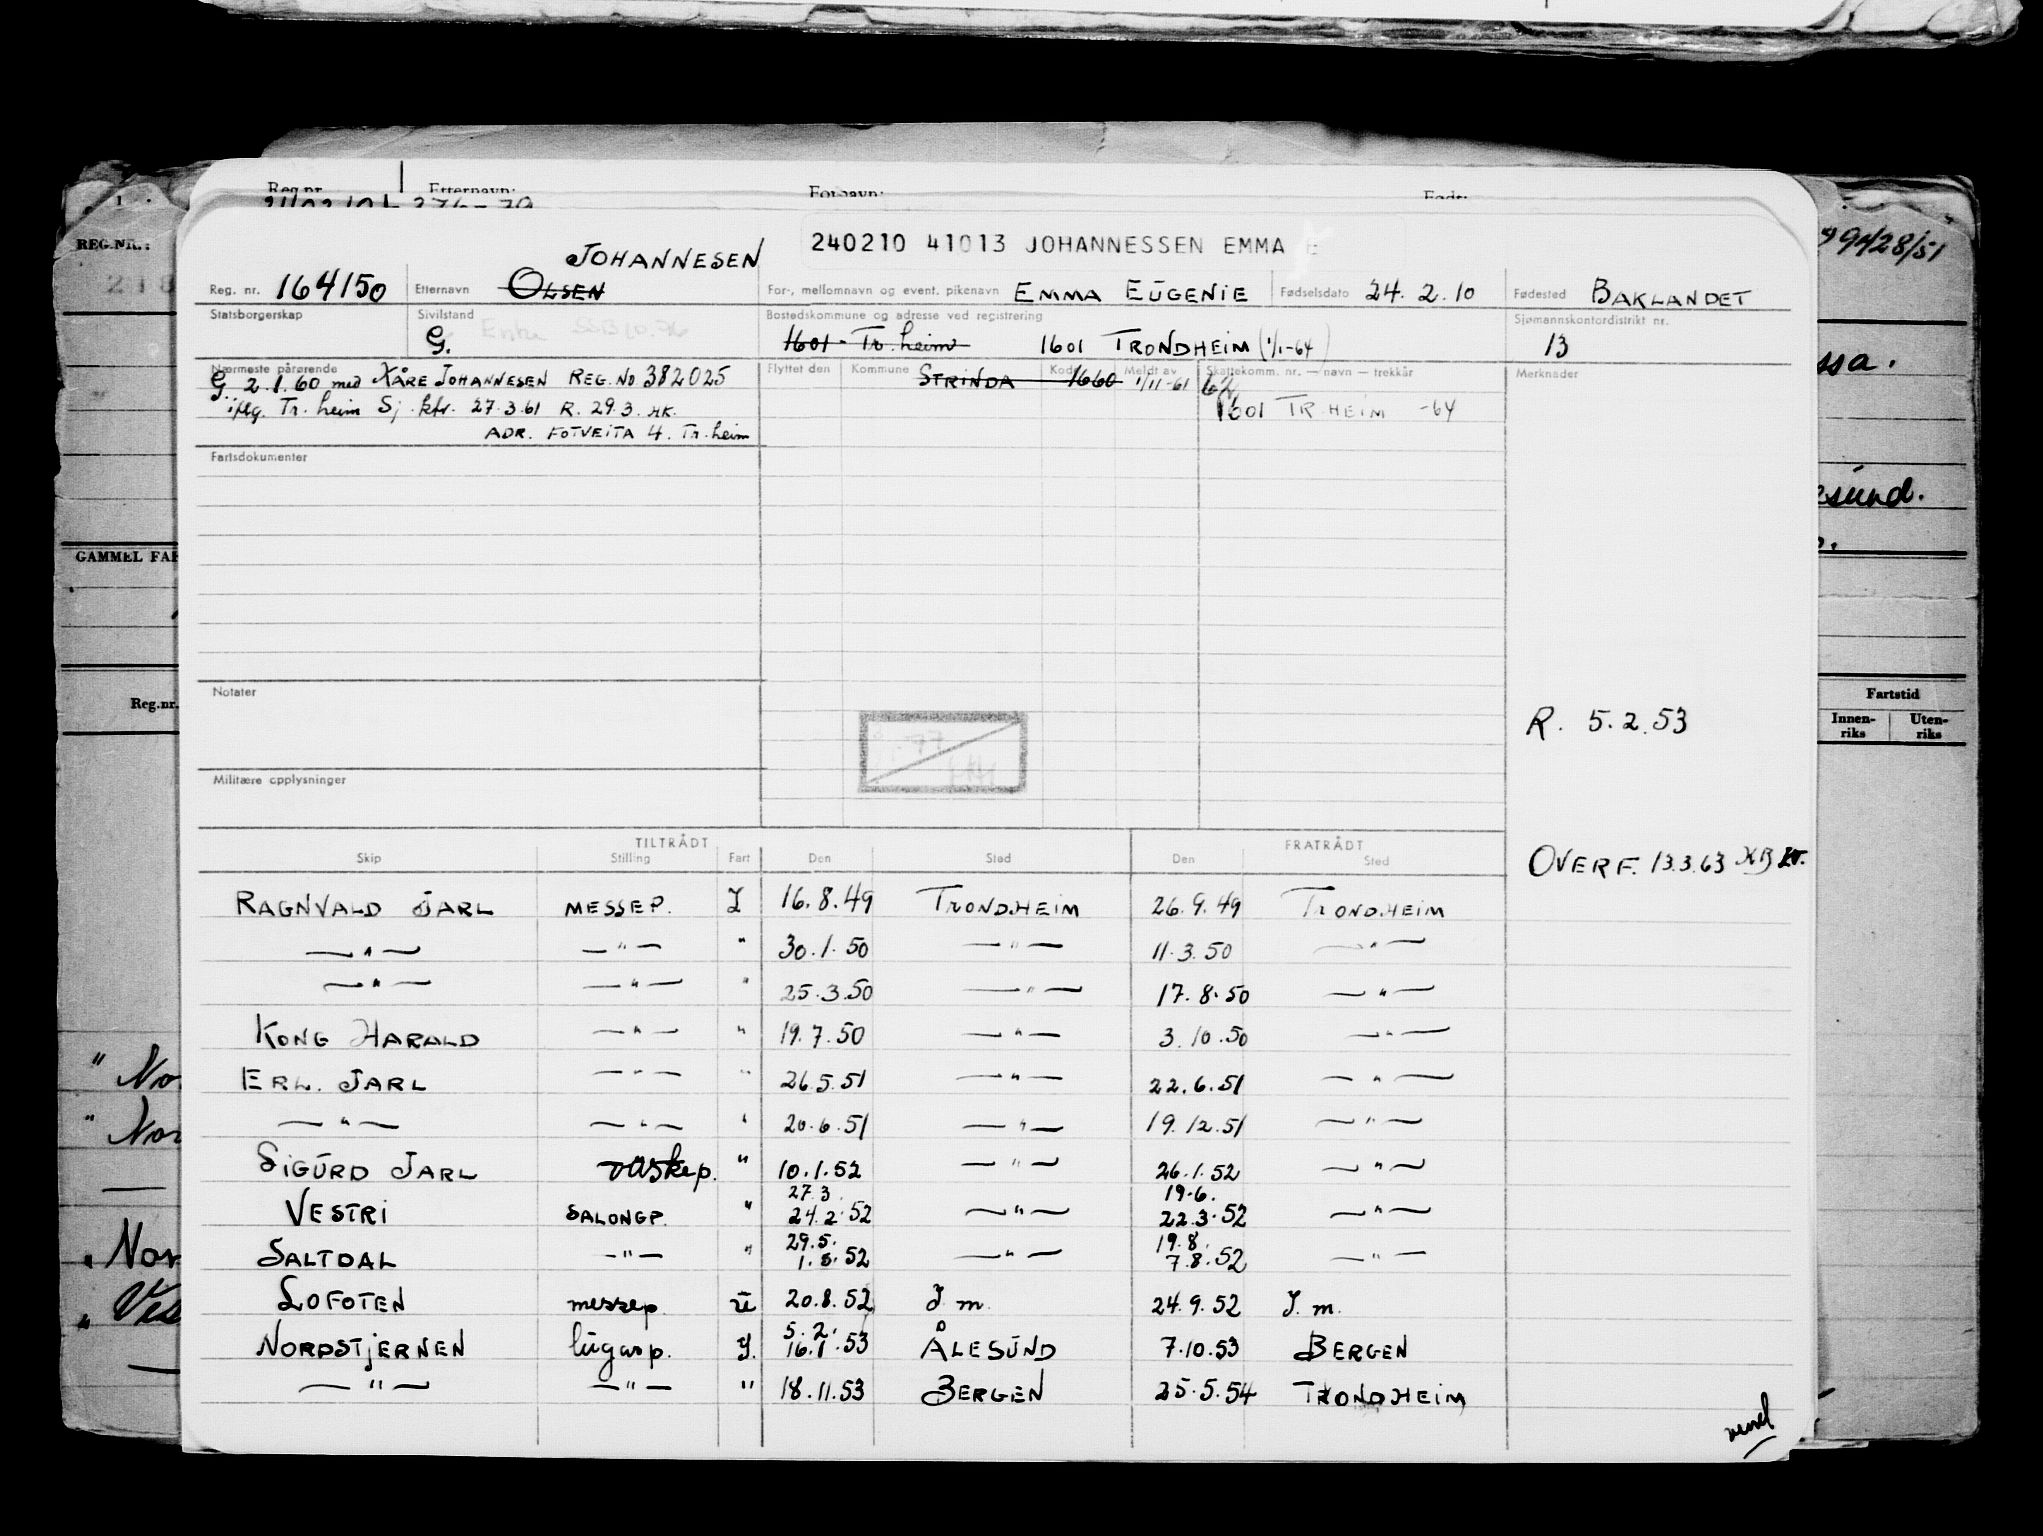 Reg.nr. Etternavn: Fornavn: Født:
REG.NR.:
99428/51
240210 41013 JOHANNESSEN EMMA E
JOHANNESEN
Reg. nr. 164150 Etternavn OLSEN For-, mellomnavn og event. pikenavn EMMA EUGENIE Fødselsdato 24. 2. 10 Fødested BAKLANDET
Statsborgerskap Sivilstand Bostedskommune og adresse ved registrering Sjømannskontordistrikt nr.
G. Enke 1601 - Tr. heim 1601 TRONDHEIM (1/1-64) 13
Nærmeste pårørende Flyttet den Kommune Kode Meldt av Skattekomm. nr. — navn — trekkår Merknader
G. 2.1.60 med KÅRE JOHANNESEN REG. NO 382025 STRINDA 1660 1/11-61 62
iflg. Tr. heim Sj. ktr. 27.3.61 R. 29.3. HK. 1601 TR. HEIM -64
ADR. FOTVEITA 4. Tr. heim
Fartsdokumenter
GAMMEL FAR
Notater
Reg.nr. Fartstid
Innen-riks Uten-riks
R. 5.2.53
Militære opplysninger
TILTRÅDT FRATRÅDT
Skip Stilling Fart Den Sted Den Sted
OVERF. 13.3.63
RAGNVALD JARL MESSEP. I 16.8.49 TRONDHEIM 26.9.49 TRONDHEIM
—"— —"— " 30.1.50 —"— 11.3.50 —"—
—"— —"— " 25.3.50 —"— 17.8.50 —"—
KONG HARALD —"— " 19.7.50 —"— 3.10.50 —"—
ERL. JARL —"— " 26.5.51 —"— 22.6.51 —"—
—"— —"— " 20.6.51 —"— 19.12.51 —"—
SIGURD JARL vaskep. " 10.1.52 —"— 26.1.52 —"—
27.3. 19.6.
VESTRI SALONGP. " 24.2.52 —"— 22.3.52 —"—
29.5. 19.8.
SALTDAL —"— " 1.8.52 —"— 7.8.52 —"—
LOFOTEN messep. U 20.8.52 I. m. 24.9.52 I. m.
5.2.
NORDSTJERNEN lugarp. I. 16.1.53 ÅLESUND 7.10.53 BERGEN
—"— —"— " 18.11.53 BERGEN 25.5.54 TRONDHEIM
vend